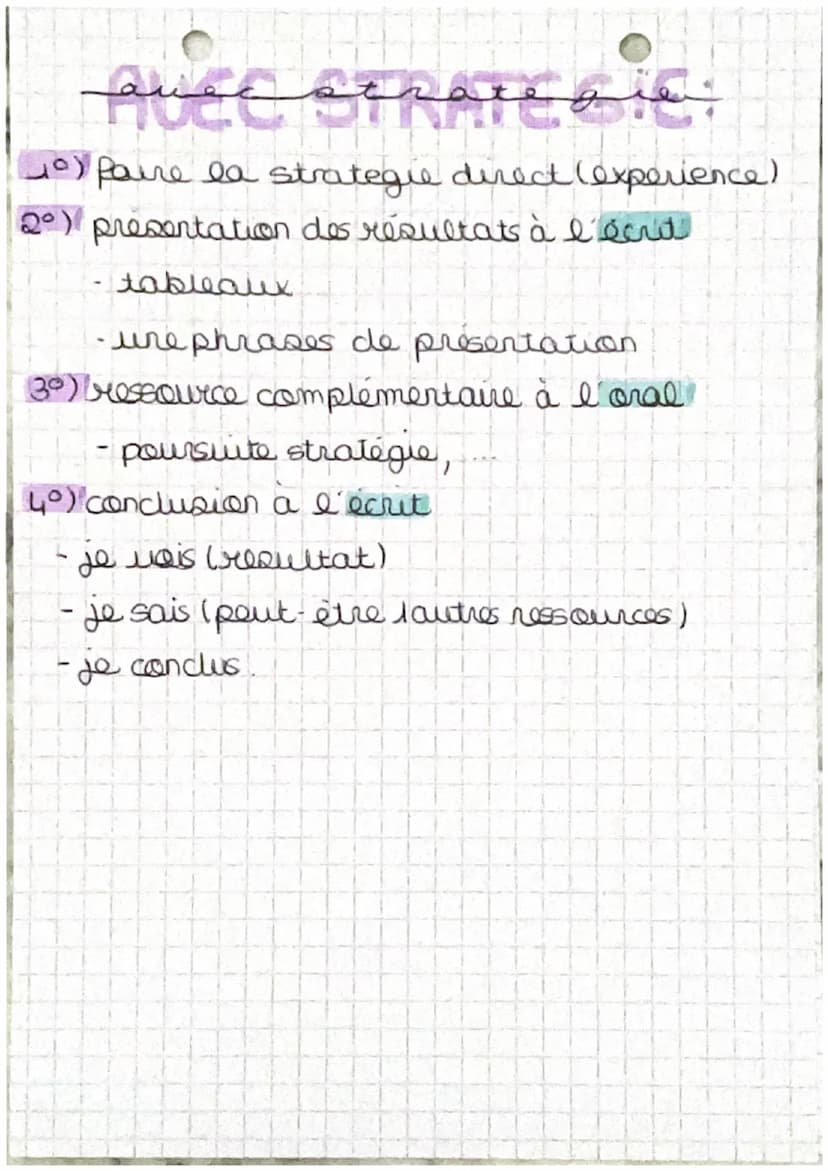 AVEC STRATEGIE:
avec stratégie:
1°) Faire la strategie direct (experience)
2°) présentation des résultats à l'écrit
- tableaux
- une phrases de présentation
3°) ressource complémentaire à l'oral
- poursuite stratégie, ...
4°) conclusion à l'écrit
- je vois (resultat)
- je sais (peut-être d'autres ressources)
- je conclus.